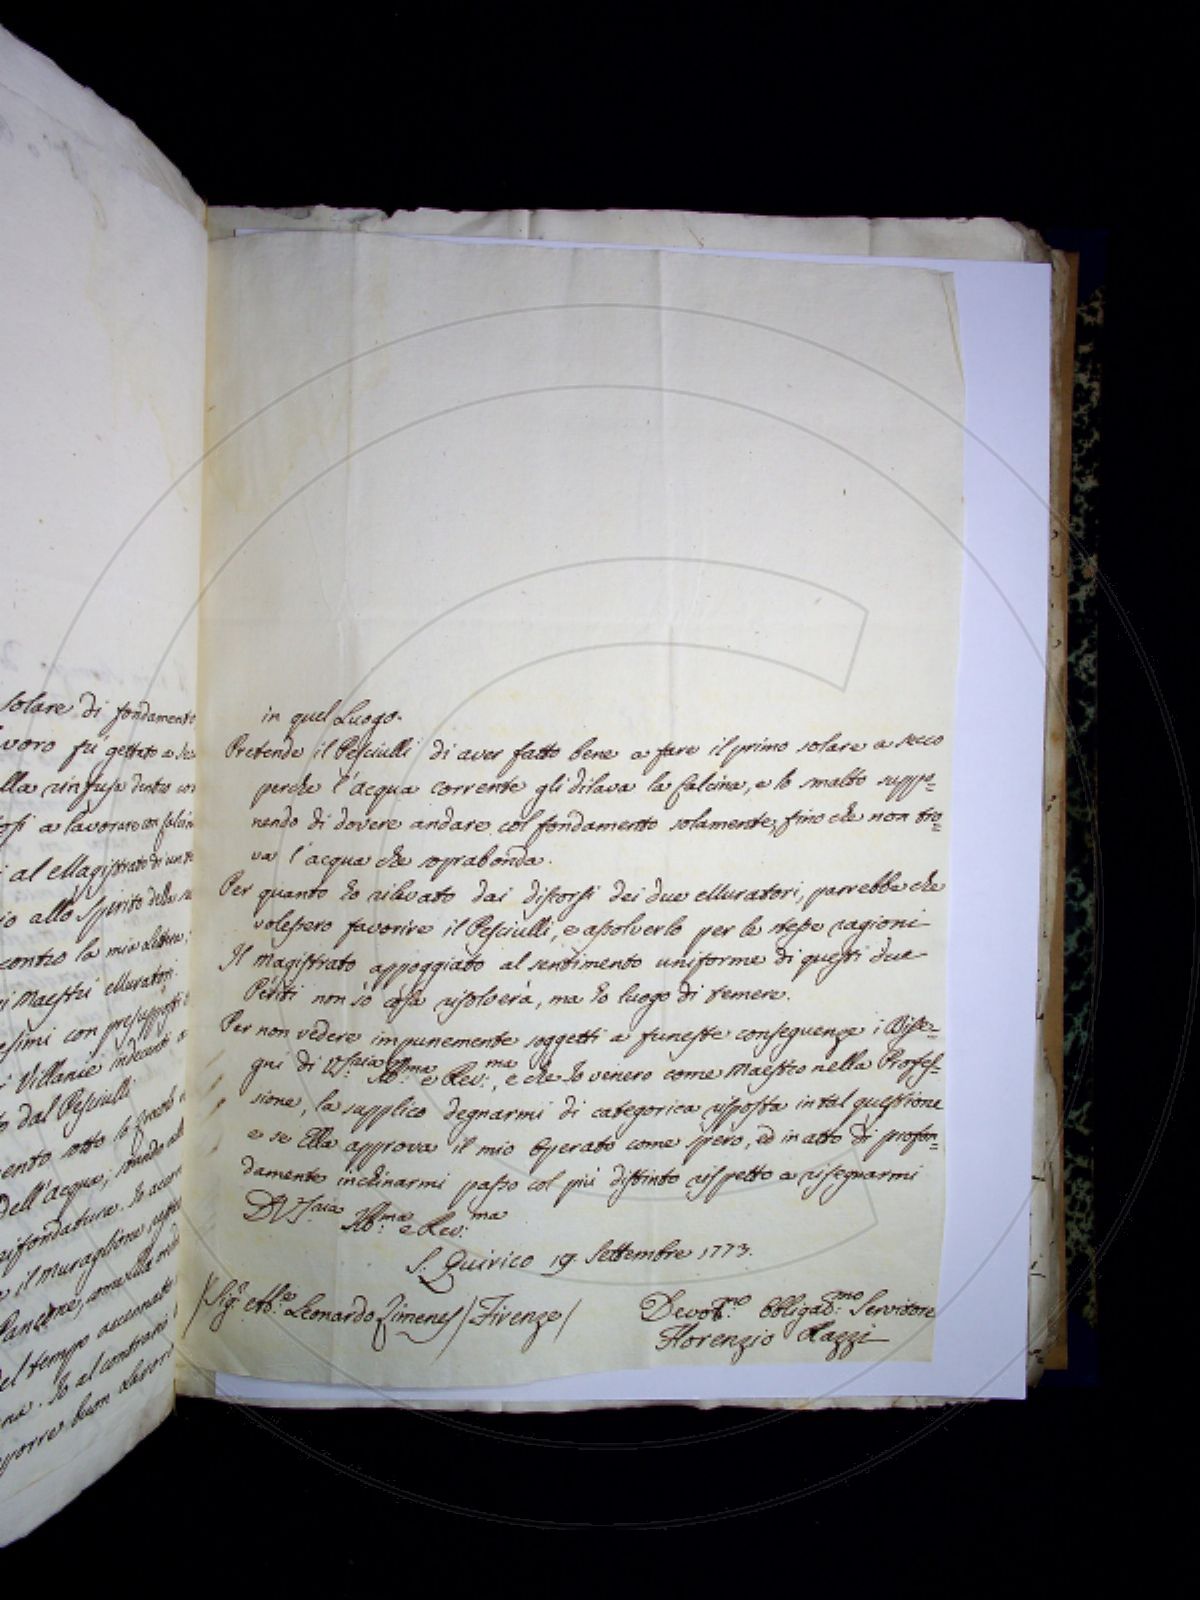 solare di fondamento
voro fu gettato a
lla rinfusa dentro
a lavorare con calcina
al Magistrato di
io allo spirito della
contro la mia Lettera;
i Maestri Muratori
esimi con presupposti
Villanie indecenti
dal Pesciulli
ento sotto lo
dell'acqua;
rifondatura. Io
il Muraglione
Pancione,
el tempo accennato
Io al contrario
porre buon Lavoro
in quel Luogo.
Pretende il Pesciulli di aver fatto bene a fare il primo solare a secco
perche l'acqua corrente gli dilava la Calcina, e lo smalto suppo=
nendo di dovere andare col fondamento solamente, fino che non tro=
va l'acqua che soprabonda.
Per quanto ho rilevato dai discorsi dei due Muratori, parrebbe che
volessero favorire il Pesciulli, e assolverlo per le stesse ragioni
Il Magistrato appoggiato al sentimento uniforme di questi due
Periti non so cosa risolverà, ma ho luogo di temere.
Per non vedere impunemente soggetti a funeste conseguenze i Disse=
gni di VS.aia Ill.ma e Rev.ma, e che Io venero come Maestro nella Profes=
sione, la supplico degnarmi di categorica risposta in tal questione
e se Ella approva il mio Operato come spero, ed in atto di profon=
damente inchinarmi passo col più distinto rispetto a risegnarmi
D VS.aia Ill.ma e Rev.ma
S. Quirico 19. Settembre 1773.
/Sig.r Ab.e Leonardo Zimenes/Firenze/
Devot.mo Obbligad.mo Servidore
Florenzio Razzi